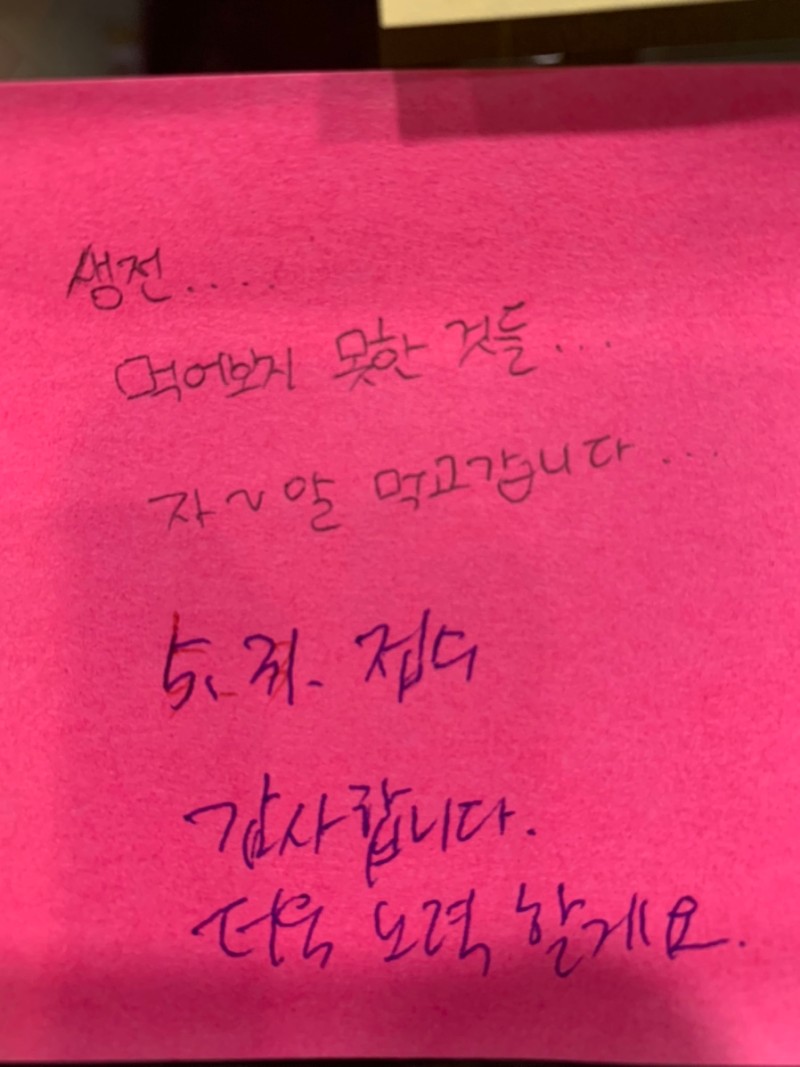 생전....
먹어보지 못한 것들...
자~알 먹고갑니다...
감사합니다.
더욱 노력 할게요.